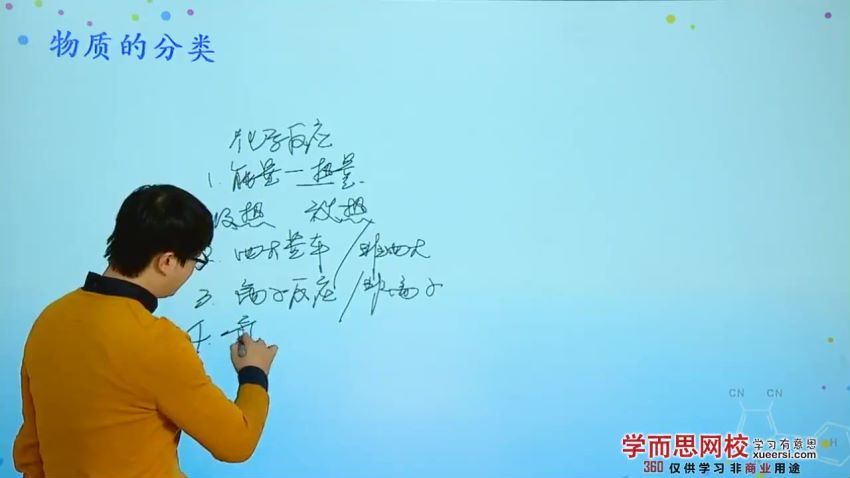 物质的分类
化学反应
1. 能量—热量
吸热 放热
四大基本/非四大
3. 离子反应/非离子
4.
CN CN
H
学而思网校 学习有意思
xueersi.com
360 仅供学习 非商业用途